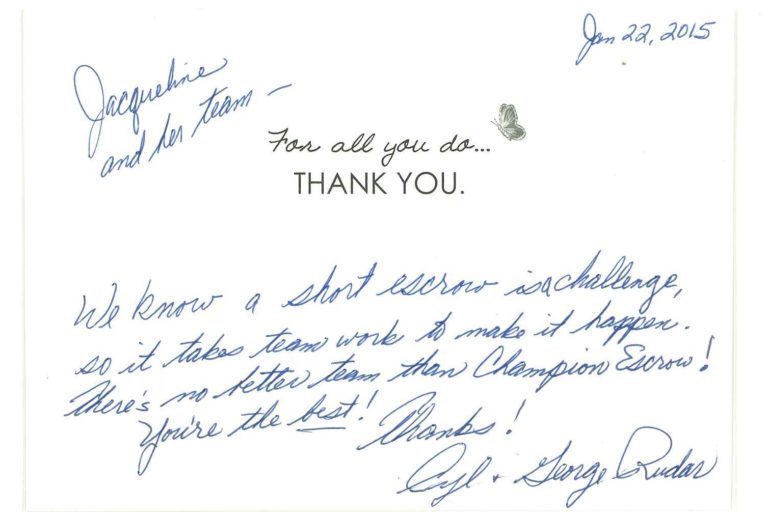 Jan 22, 2015
Jacqueline
and her team –
For all you do...
THANK YOU.
We know a short escrow is a challenge,
so it takes team work to make it happen.
There's no better team than Champion Escrow!
You're the best! Thanks!
Cyl + George Rudar